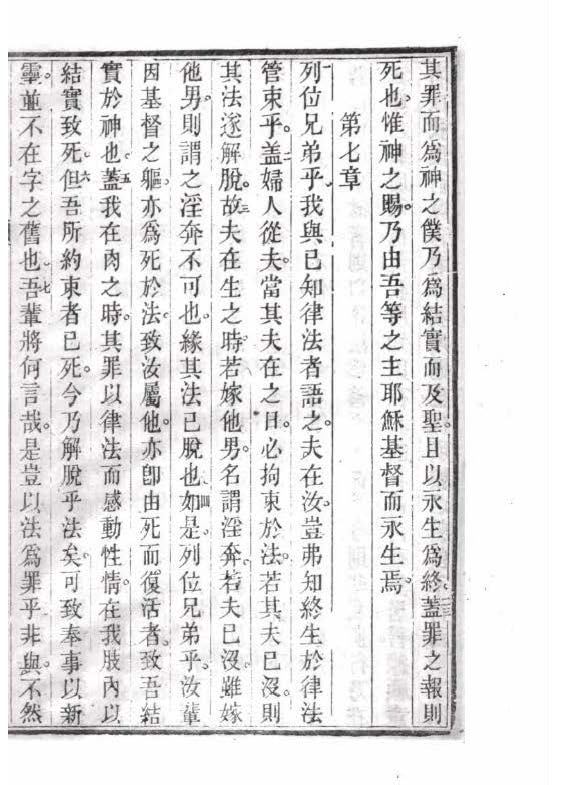 其罪而爲神之僕乃爲結實而及聖。且以永生爲終。三蓋罪之報則
死也。惟神之賜。乃由吾等之主耶穌基督而永生焉。
第七章
一列位兄弟乎。我與已知律法者語之。夫在汝豈弗知終生於律法
管束乎。二蓋婦人從夫。當其夫在之日。必拘束於法。若其夫已沒。則
其法遂解脫。三故夫在生之時。若嫁他男。名謂淫奔。若夫已沒。雖嫁
他男。則謂之淫奔不可也。緣其法已脫也。四如是。列位兄弟乎。汝輩
因基督之軀。亦爲死於法。致汝屬他。亦卽由死而復活者。致吾結
實於神也。五蓋我在肉之時。其罪以律法而感動性情。在我肢內以
結實致死。六但吾所約束者已死。今乃解脫乎法矣。可致奉事以新
靈。並不在字之舊也。七吾輩將何言哉。是豈以法爲罪乎。非與。不然